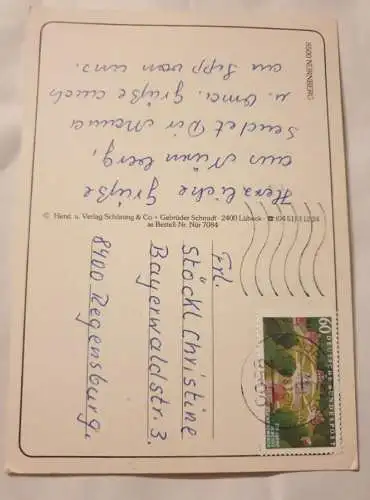 8500 NÜRNBERG
Herzliche Grüße
aus Nürnberg,
sendet Dir Mama
u. Oma. Grüße auch
an Sepp von uns.
© Herst. u. Verlag Schöning & Co + Gebrüder Schmidt · 2400 Lübeck
Bestell-Nr. Nür 7084
Frl.
Stöckl Christine
Bayerwaldstr. 3.
8400 Regensburg.
60
DEUTSCHE BUNDESPOST